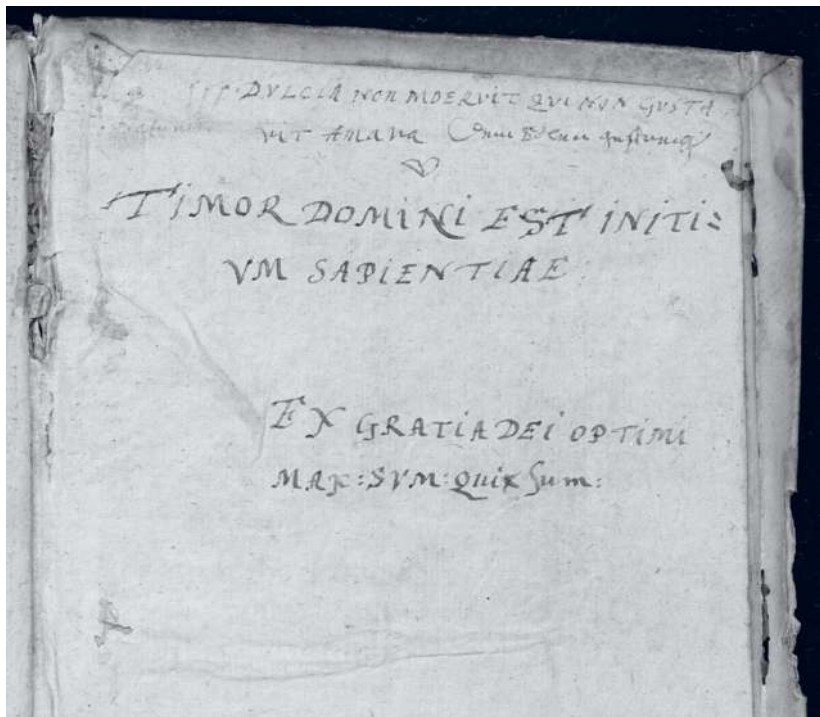 DVLCIA NON MOERVIT QVI NON GVSTA
VIT AMARA
TIMOR DOMINI EST INITI=
VM SAPIENTIAE
EX GRATIA DEI OPTIMI
MAX: SVM: Quix sum: